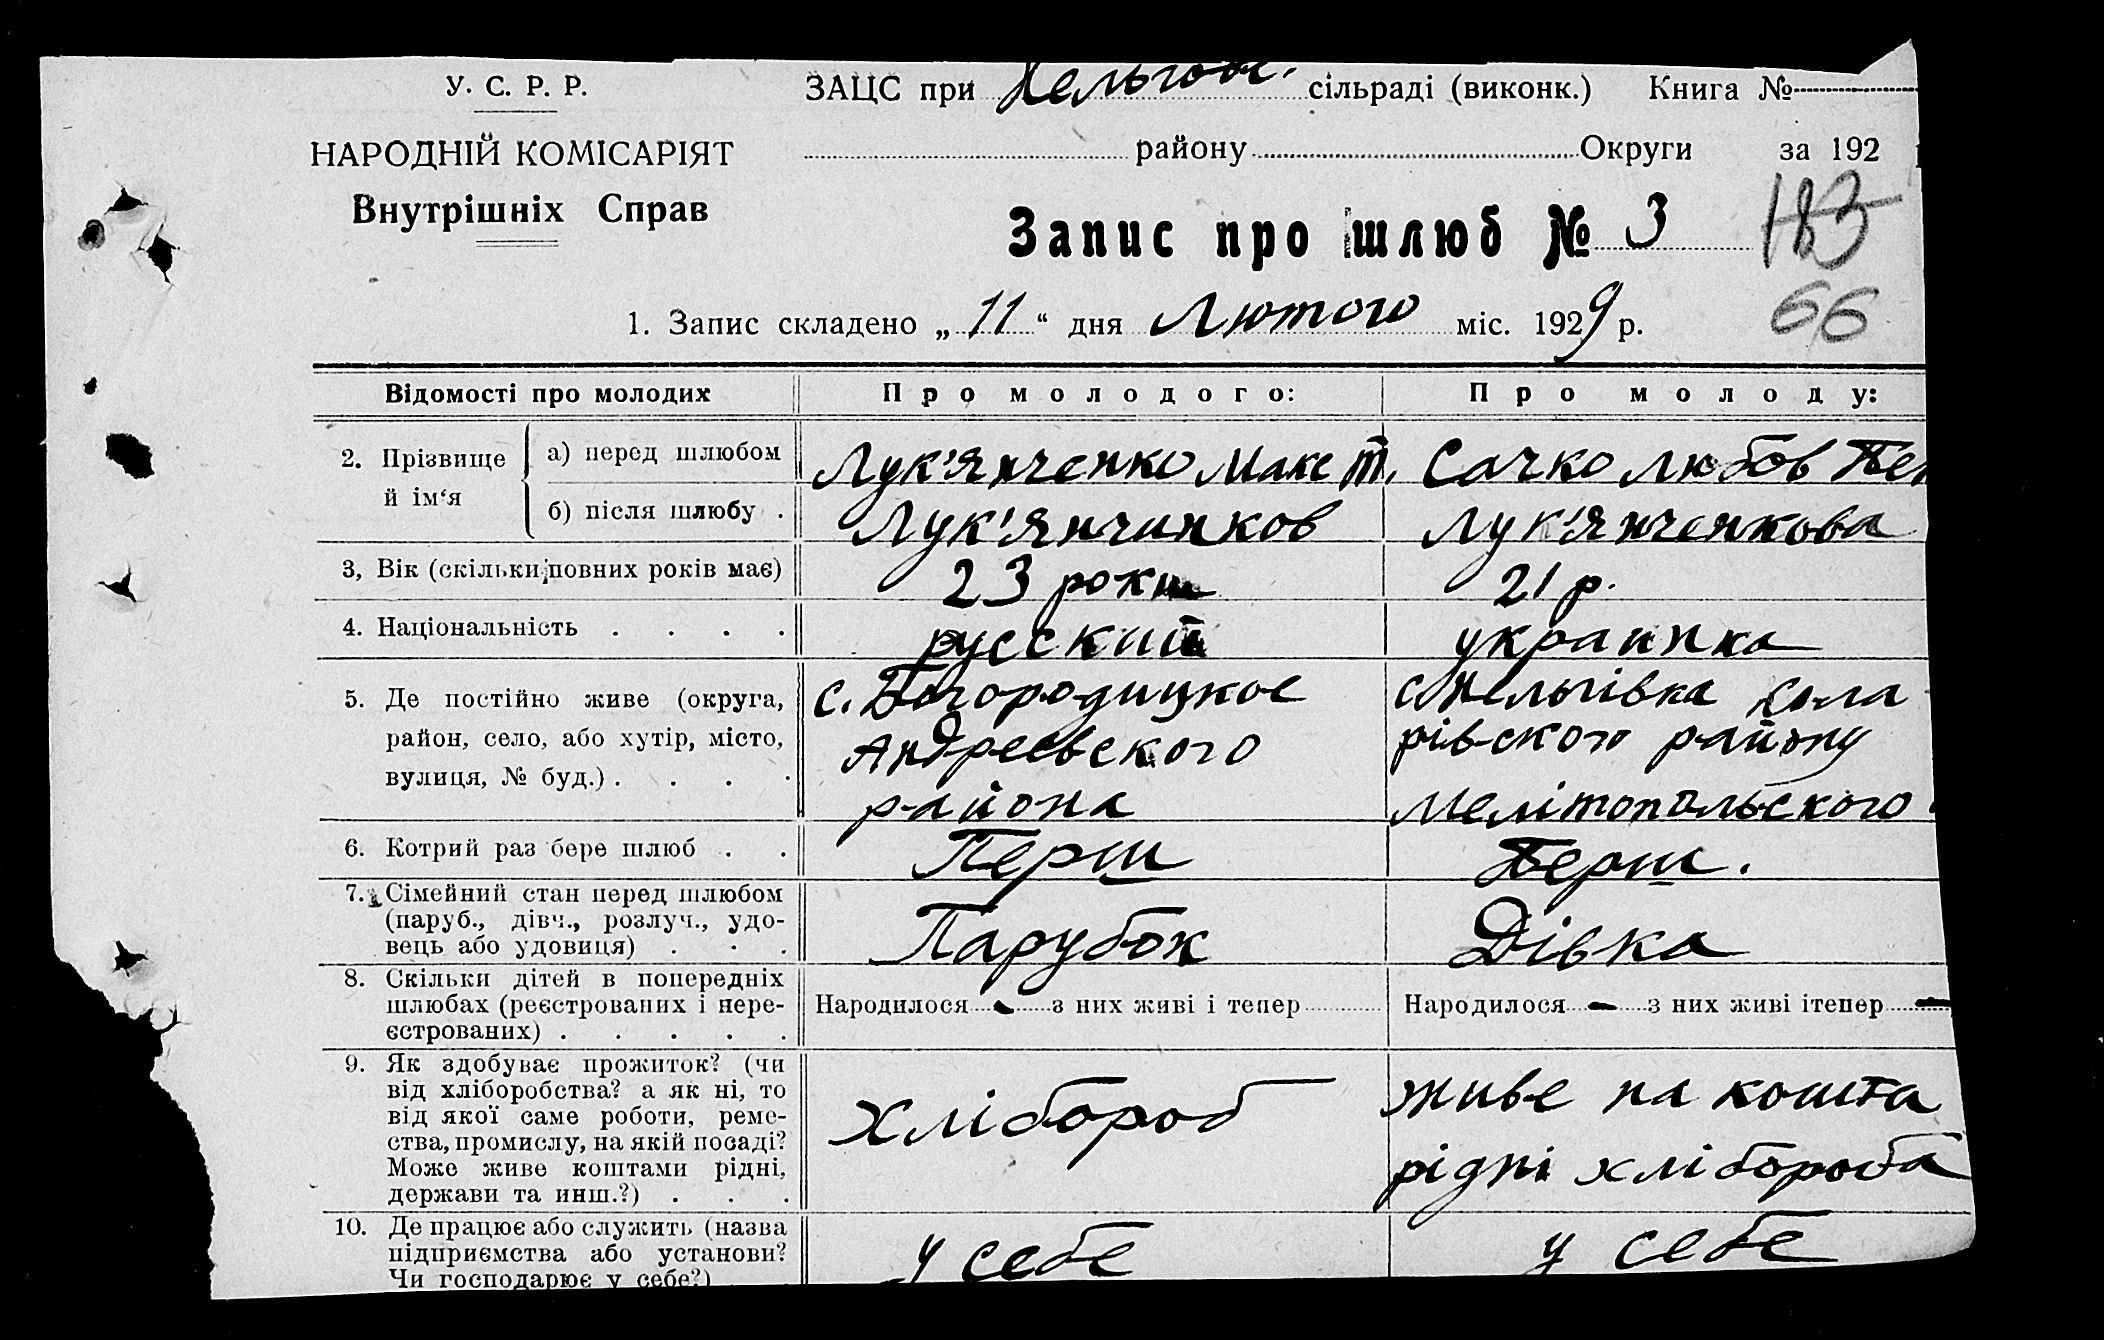 У. С. Р. Р.
ЗАЦС при Нельгов. сільраді (виконк.) Книга №
НАРОДНІЙ КОМІСАРІЯТ
району Округи за 192
Внутрішніх Справ
Запис про шлюб № 3
183
66
1. Запис складено „11“ дня Лютого міс. 1929 р.
Відомості про молодих
Про молодого:
Про молоду:
2. Прізвище й ім‘я
а) перед шлюбом
Лук'янченко Макс Т.
Сачко Любов
б) після шлюбу .
Лук'янчинков
Лук'янченкова
3, Вік (скільки повних років має)
23 роки
21 р.
4. Національність . . . .
русский
украинка
5. Де постійно живе (округа,
район, село, або хутір, місто,
вулиця, № буд.) . . . .
с. Богородицкое
Андреевского
района
с. Нельгівка Кола
рівского району
Мелітопольского
6. Котрий раз бере шлюб . .
Перш
Перш.
7. Сімейний стан перед шлюбом
(паруб., дівч., розлуч., удо-
вець або удовиця) . . .
Парубок
Дівка
8. Скільки дітей в попередніх
шлюбах (реєстрованих і нере-
єстрованих) . . . . .
Народилося - з них живі і тепер
Народилося - з них живі ітепер -
9. Як здобуває прожиток? (чи
від хліборобства? а як ні, то
від якої саме роботи, реме-
ства, промислу, на якій посаді?
Може живе коштами рідні,
держави та инш.?) . . .
Хлібороб
живе на кошта
рідні хлібороба
10. Де працює або служить (назва
підприємства або установи?
Чи господарює у себе?)
у себе
у себе